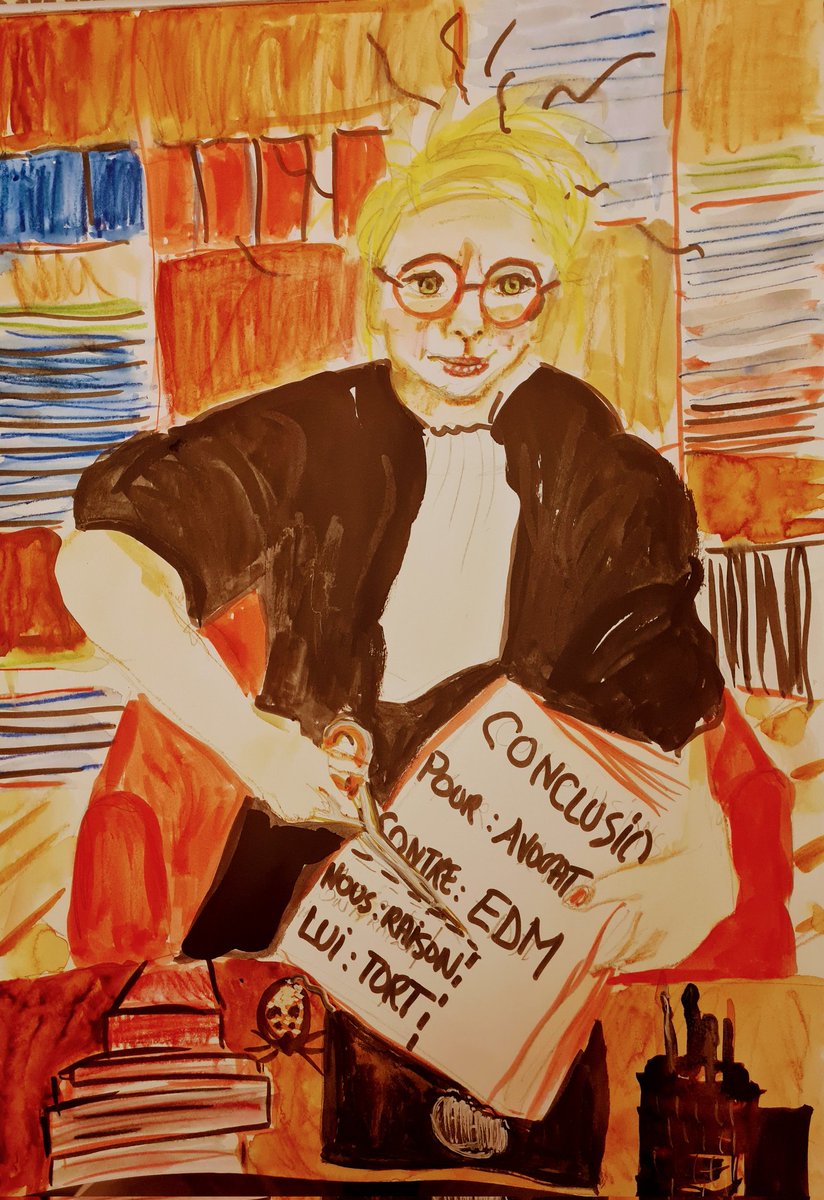 CONCLUSIO
POUR : AVOCAT
CONTRE : EDM
NOUS : RAISON
LUI : TORT